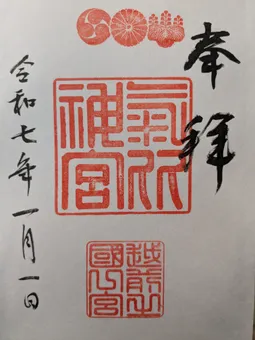 奉拝
氣比神宮
越前之國一宮
令和七年一月一日